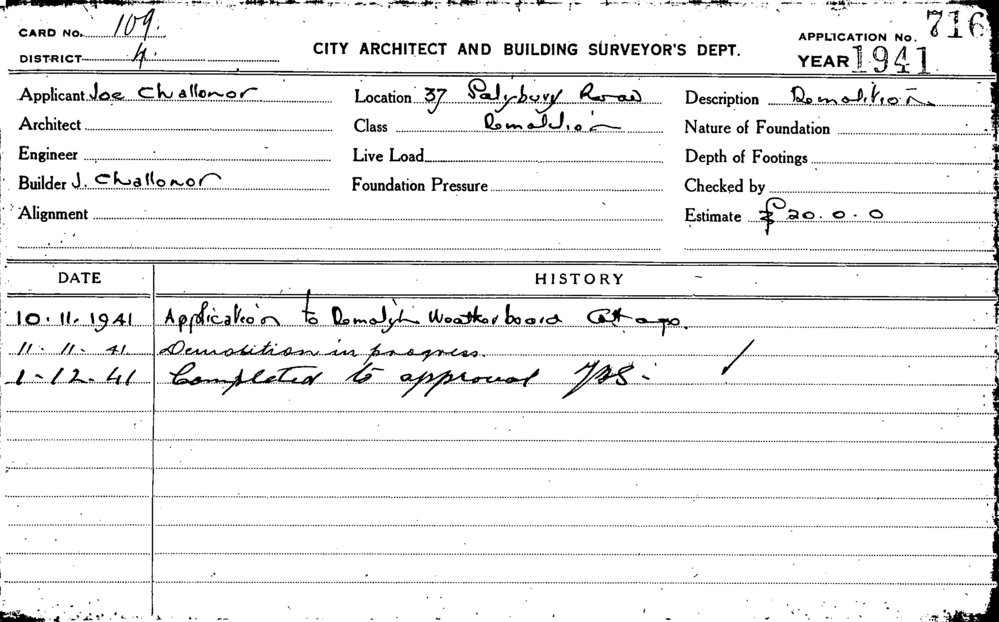 CARD No. 109. CITY ARCHITECT AND BUILDING SURVEYOR'S DEPT. APPLICATION No. 716
DISTRICT 4. YEAR 1941
Applicant Joe Challonor Location 37 Salisbury Road Description Demolition
Architect Class Demolition Nature of Foundation
Engineer Live Load Depth of Footings
Builder J. Challonor Foundation Pressure Checked by
Alignment Estimate £20.0.0
DATE HISTORY
10.11.1941 Application to Demolish Weatherboard Cottage.
11.11.41 Demolition in progress.
1-12-41 Completed to approval